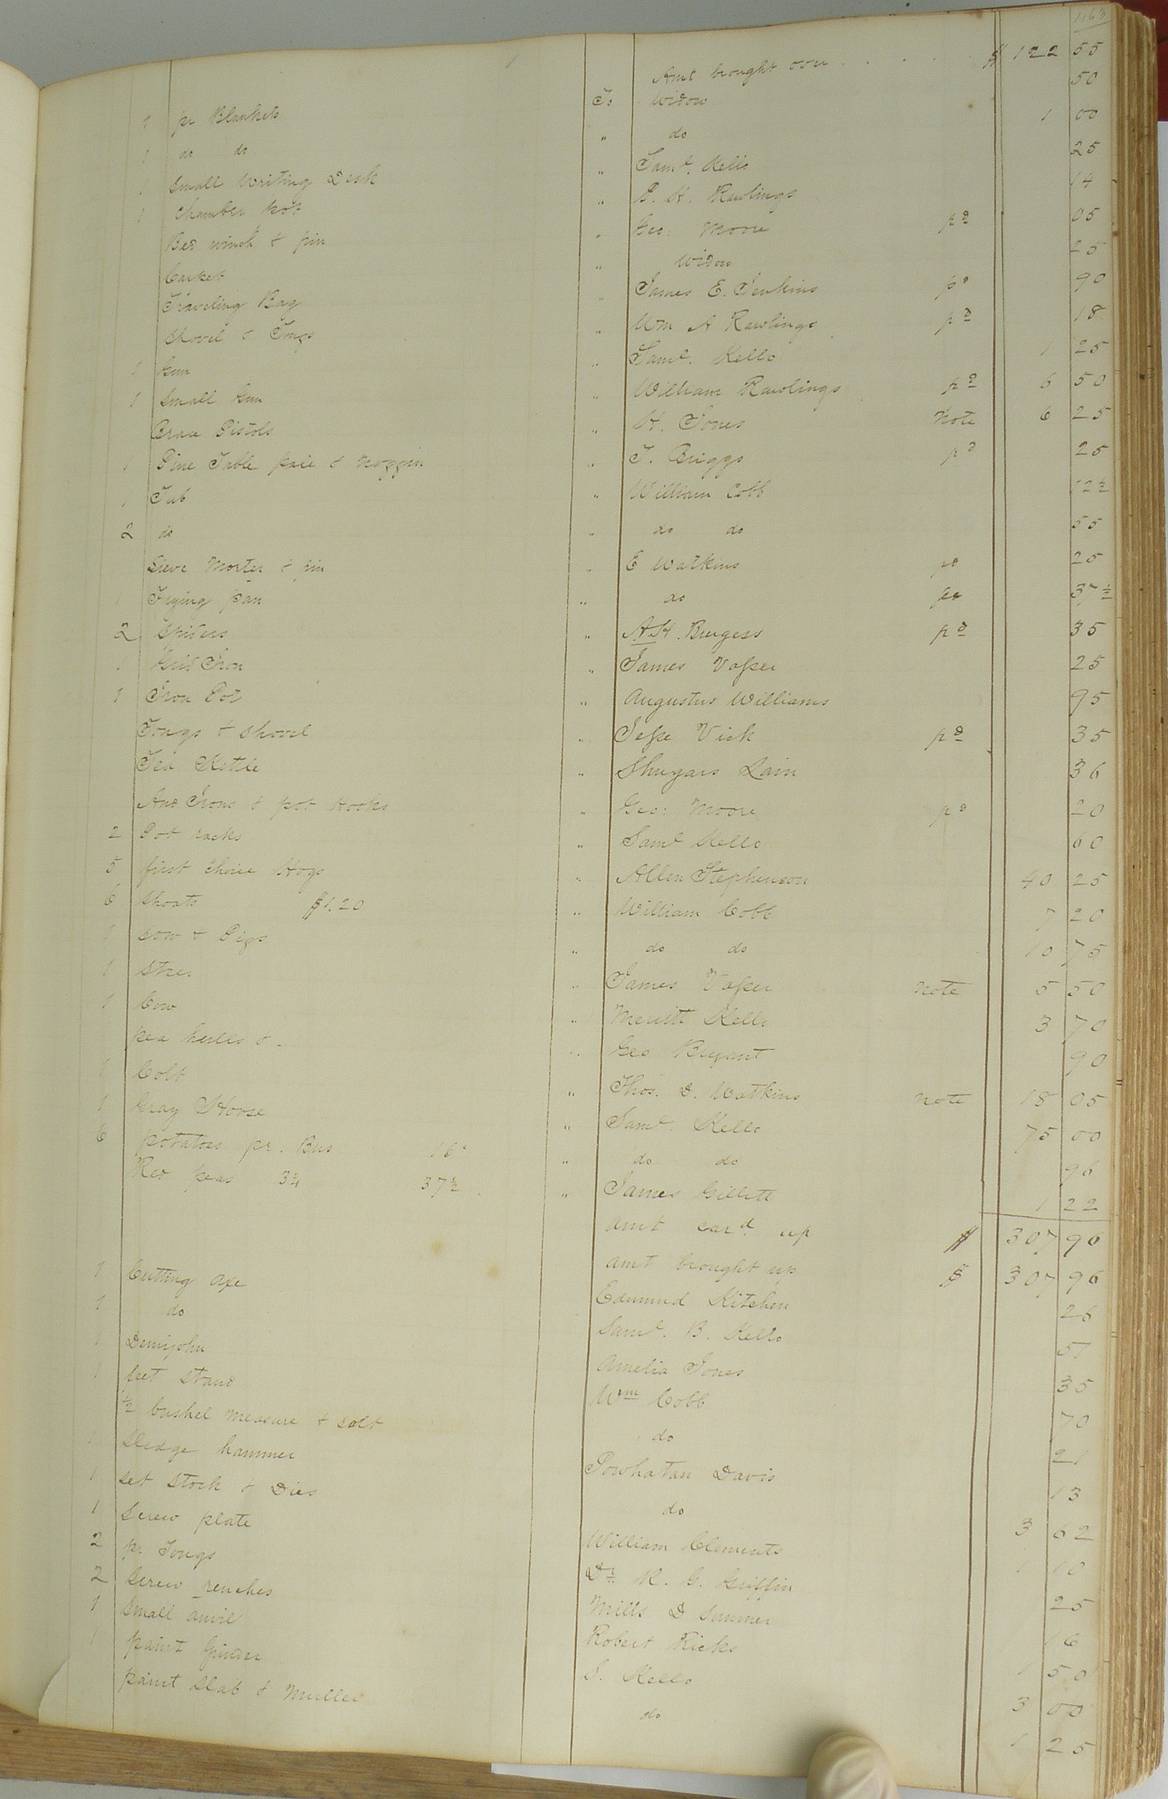 Amt brought over $ 122 55
1 pr Blankets To Widow 50
1 do do " do 1 00
1 Small Writing Desk " Saml. Kello 25
1 Chamber Pot " B. H. Rawlings 14
Bed winch & pin " Geo: Moore pd 05
Casket " Widow 25
Traveling Bag " James E. Jenkins pd 90
Shovel & Tongs " Wm A Rawlings pd 18
1 Gun " Saml. Kello 1 25
1 Small Gun " William Rawlings pd 6 50
Brace Pistols " H. Jones Note 6 25
1 Pine Table pale & Noggin " T. Briggs pd 25
1 Tub " William Cobb 12½
2 do " do do 55
Sieve Morter & pin " E Watkins pd 25
1 Frying pan " do pd 37½
2 Spiders " A. H. Burgess pd 35
1 Grid Iron " James Vasser 25
1 Iron Pot " Augustus Williams 95
Tongs & Shovel " Jesse Vick pd 35
Tea Kettle " Shugars Lain 36
And Irons & pot Hooks " Geo: Moore pd 20
2 Pot racks " Saml Kello 60
5 first choice Hogs " Allen Stephenson 40 25
6 Shoats $1.20 " William Cobb 7 20
1 Sow & Pigs " do do 10 75
1 Steer " James Vasser Note 5 50
1 Cow " Meritt Kello 3 70
pea hulls &. " Geo Bryant 90
1 Colt " Thos. D. Watkins Note 18 05
1 Gray Horse " Saml. Kello 75 00
6 potatoes pr. Bus 16 " do do 96
Red peas 3¼ 37½ " James Gillett 1 22
amt card up $ 307 96
amt brought up $ 307 96
1 Cutting Axe Edmund Kitchen 26
1 do Saml. B. Kello 51
1 Demijohn Amelia Jones 35
1 Jeet Stand Wm Cobb 70
½ bushel measure & salt do 21
1 Sledge hammer Powhatan Davis 13
1 Set Stock & Dies do 3 62
1 Screw plate William Clements 1 10
2 pr. Tongs Dr. R. G. Griffin 25
2 Screw renches Mills D Sumner 16
1 Small anvil Robert Ricks 1 50
1 paint Grinder S. Kello 3 00
paint Slab & Muller do 1 25